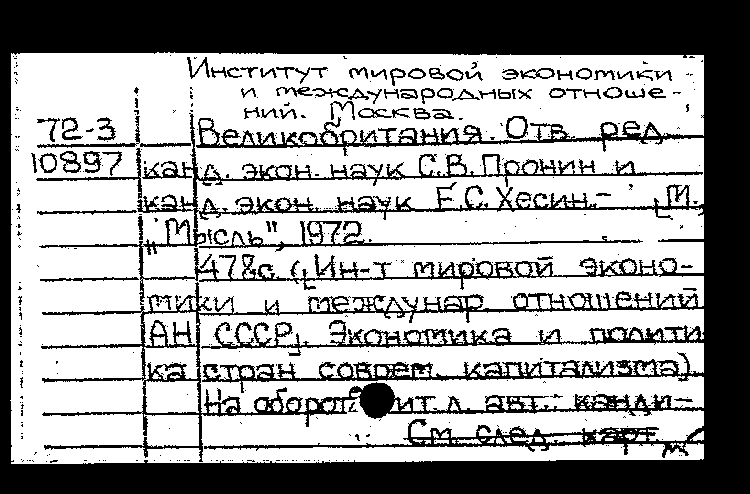 Институт мировой экономики
и международных отноше-
ний. Москва.
72-3 Великобритания. Отв. ред.
10897 канд. экон. наук С.В. Пронин и
канд. экон. наук Е.С. Хесин.- [М.,
"Мысль", 1972.
478с. ([Ин-т мировой эконо-
мики и междунар. отношений
АН СССР]. Экономика и полити
ка стран соврем. капитализма).
На обороте тит. л. авт.: канди-
См. след. карт.